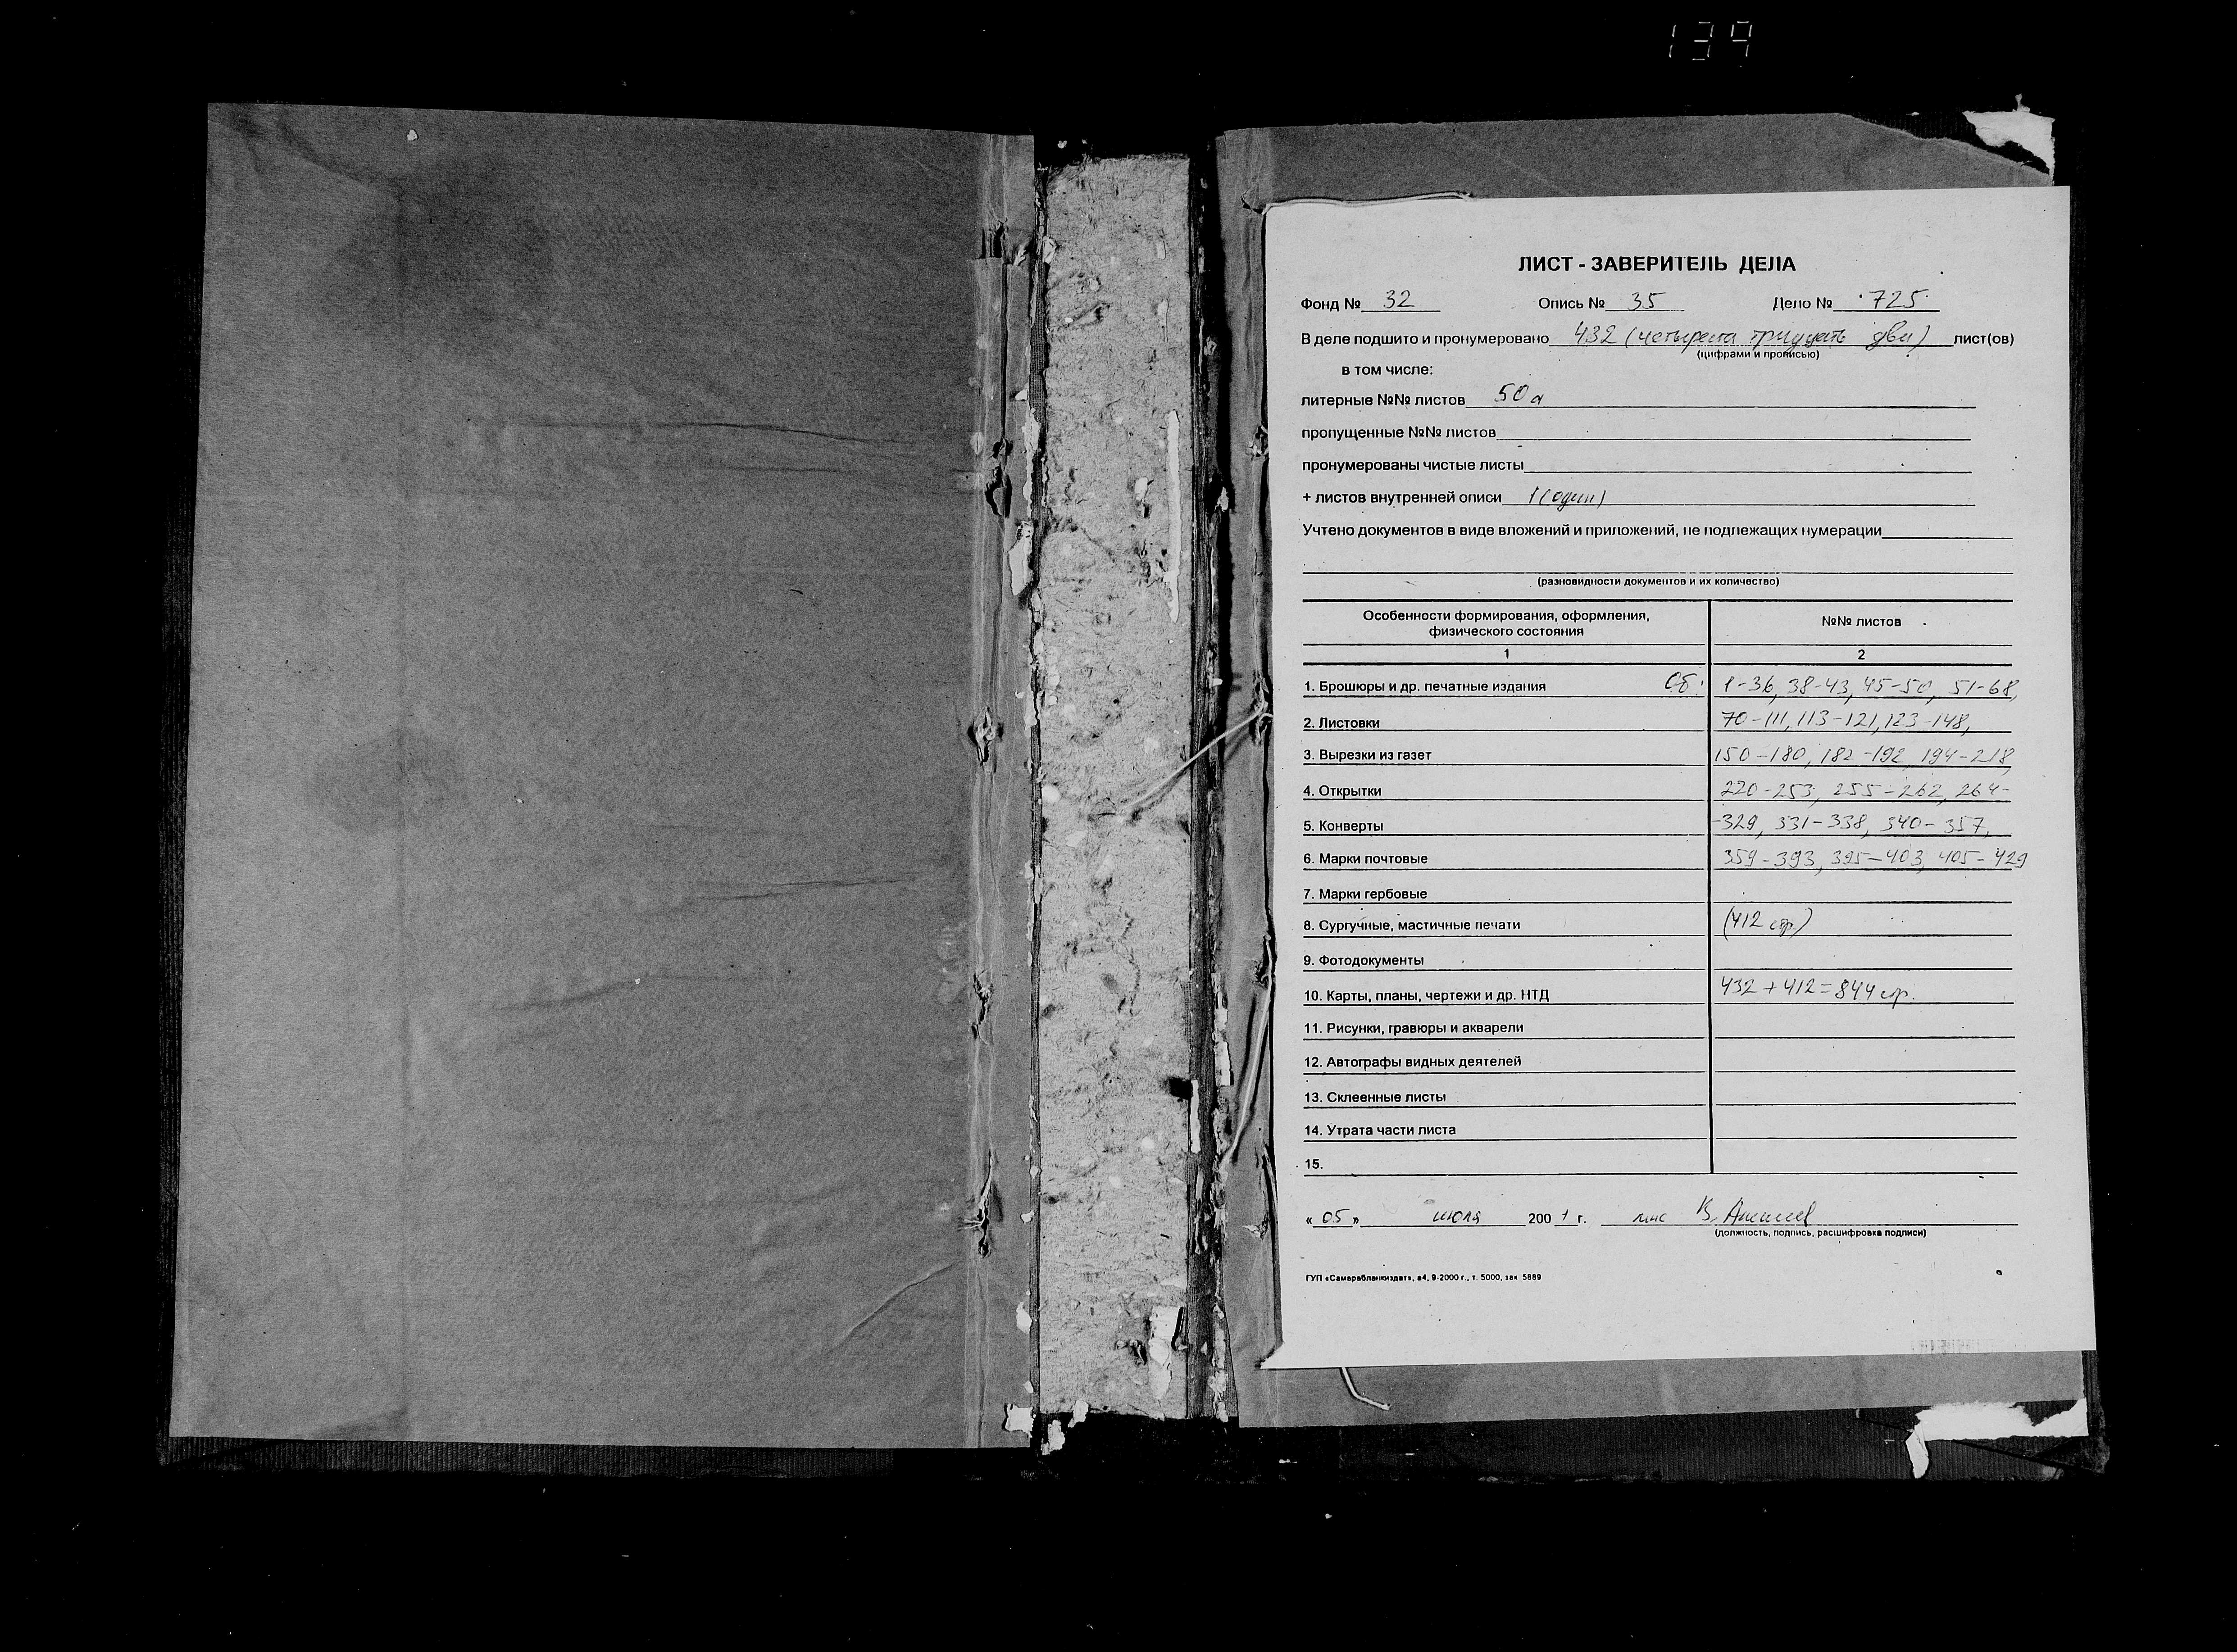 139
ЛИСТ - ЗАВЕРИТЕЛЬ ДЕЛА
Фонд № 32 Опись № 35 Дело № 725
В деле подшито и пронумеровано 432 (четыреста тридцать два) лист(ов)
(цифрами и прописью)
в том числе:
литерные №№ листов 50а
пропущенные №№ листов
пронумерованы чистые листы
+ листов внутренней описи 1 (один)
Учтено документов в виде вложений и приложений, не подлежащих нумерации
(разновидности документов и их количество)
Особенности формирования, оформления, физического состояния №№ листов
1 2
1. Брошюры и др. печатные издания Об. 1-36, 38-43, 45-50, 51-68,
2. Листовки 70-111, 113-121, 123-148,
3. Вырезки из газет 150-180, 182-192, 194-218,
4. Открытки 220-253, 255-262, 264-
5. Конверты -329, 331-338, 340-357,
6. Марки почтовые 359-393, 395-403, 405-429
7. Марки гербовые
8. Сургучные, мастичные печати (412 стр)
9. Фотодокументы
10. Карты, планы, чертежи и др. НТД 432+412=844 стр.
11. Рисунки, гравюры и акварели
12. Автографы видных деятелей
13. Склеенные листы
14. Утрата части листа
15.
«05» июля 2001 г.
(должность, подпись, расшифровка подписи)
ГУП «Самарабланкиздат», а4, 9-2000 г., т. 5000, зак 5889